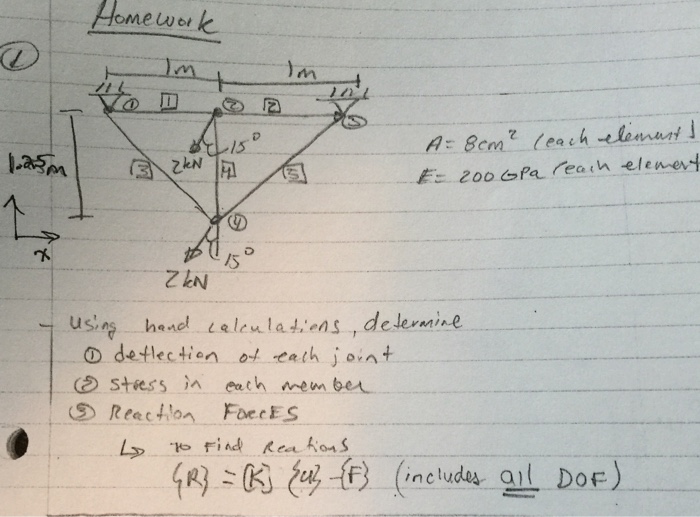 Homework
①
1m 1m
① 1 ② 2 ③
15°
2kN
1.25m 3 4 5
A = 8cm² (each element)
E = 200 GPa (each element
④
x
15°
2kN
- Using hand calculations, determine
① deflection of each joint
② Stress in each member
③ Reaction Forces
↳ to Find Reations
{R} = [K] {u} - {F} (includes all DOF)